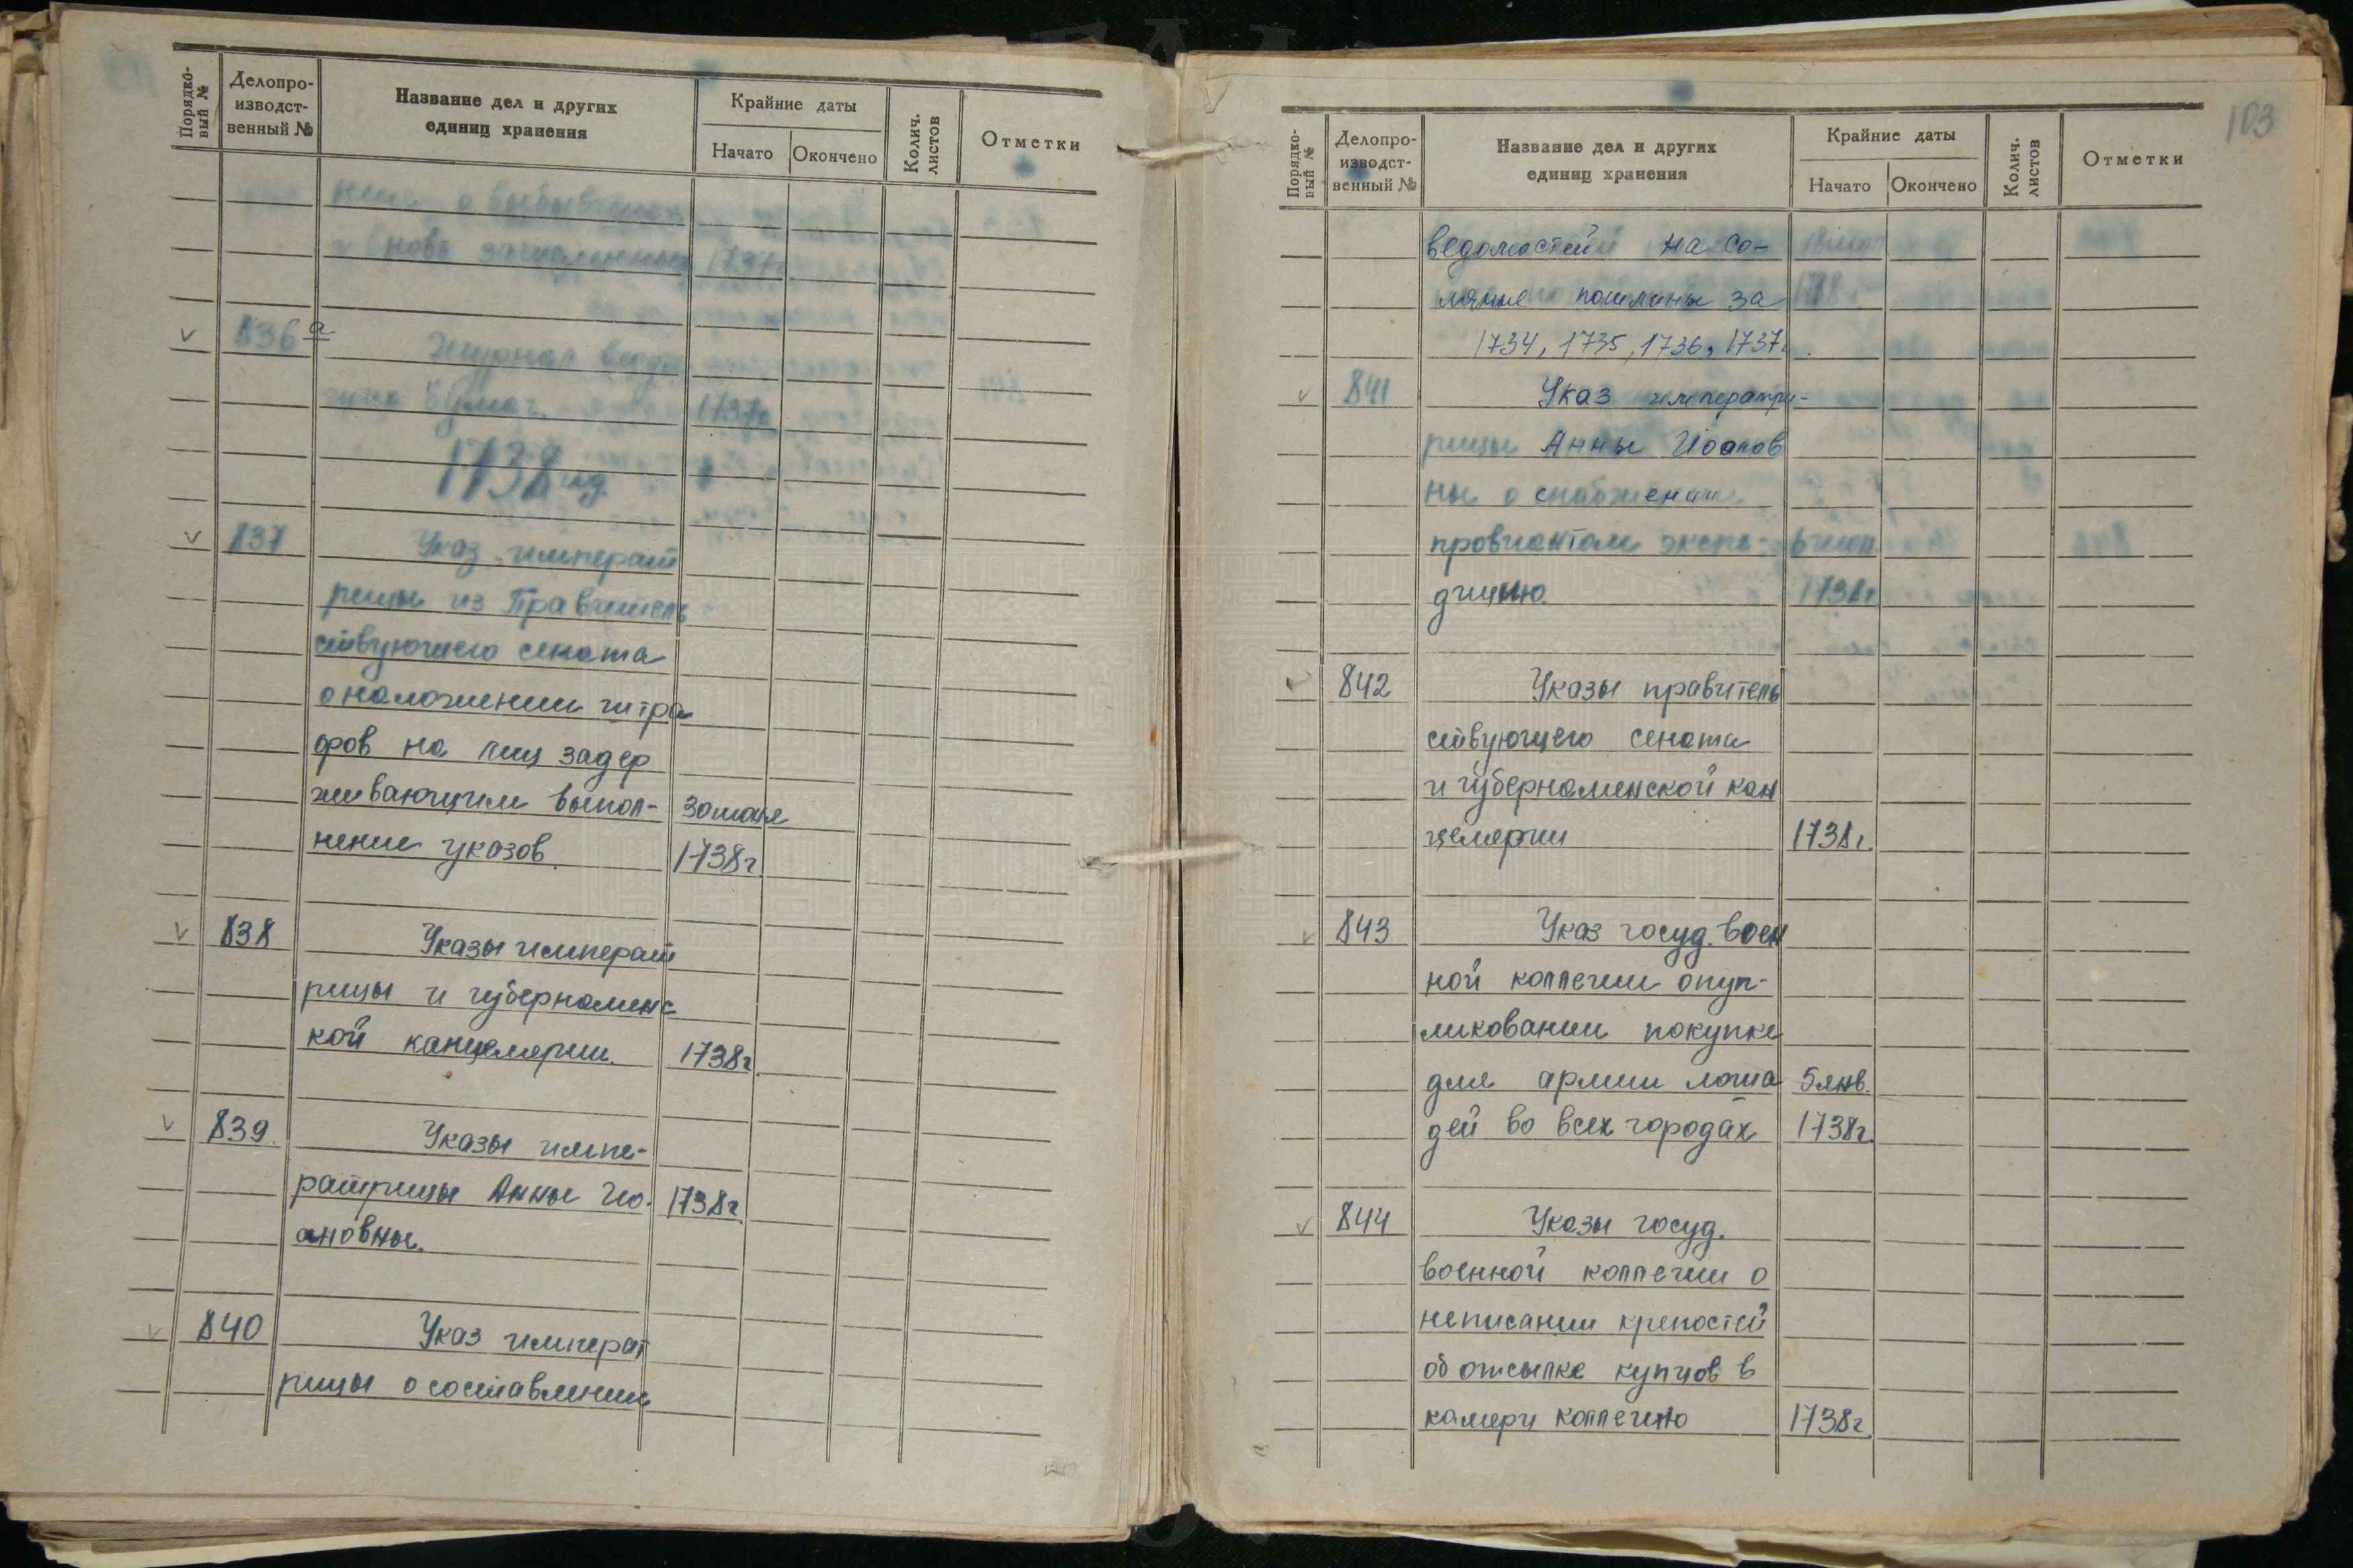 Порядко-
вый №
Делопро-
изводст-
венный №
Название дел и других
единиц хранения
Крайние даты
Начато
Окончено
Колич.
листов
Отметки
ния о выбывших
и вновь зачисленных 1737г.
836 а
Журнал входя
щих бумаг. 1737г
1738 год
837 Указ императ
рицы из Правитель
ствующего сената
о наложении штра
фов на лиц задер
живающим выпол-
нение указов. 1738г.
838 Указы императ
рицы и губернаменс
кой канцелярии. 1738г.
839. Указы импе-
ратрицы Анны Ио- 1738г.
ановны.
840 Указ императ
рицы о составлении
103
Порядко-
вый №
Делопро-
изводст-
венный №
Название дел и других
единиц хранения
Крайние даты
Начато
Окончено
Колич.
листов
Отметки
ведомостей на со-
ляные пошлины за
1734, 1735, 1736, 1737г.
841 Указ императри-
рицы Анны Иоанов
ны о снабжении
провиантом экспе-
дицию. 1738г
842 Указы правитель
ствующего сената
и губернаменской кан
целярии 1738г.
843 Указ госуд. воен
ной коллегии опуп-
ликовании покупке
для армии лоша 5 янв.
дей во всех городах 1738г.
844 Указы госуд.
военной коллегии о
неписании крепостей
об отсылке купцов в
камерц коллегию 1738г.